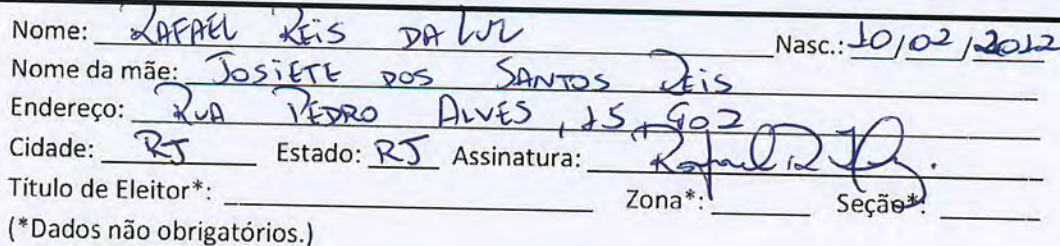 Nome: RAFAEL REIS DA LUZ Nasc.: 10/02/2012
Nome da mãe: JOSIETE DOS SANTOS REIS
Endereço: RUA PEDRO ALVES, 15, 902
Cidade: RJ Estado: RJ Assinatura: Rafael R
Título de Eleitor*: Zona*: Seção*:
(*Dados não obrigatórios.)